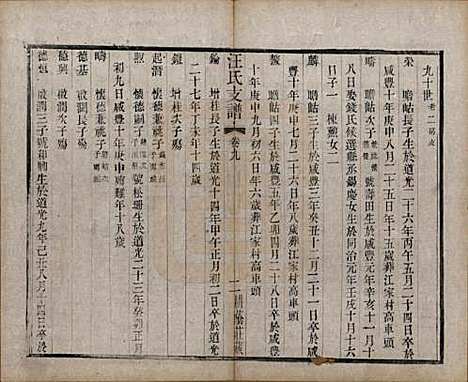 九十世 卷二 易支
梁 贍岵長子生於道光二十六年丙午五月二十四日卒於
咸豐十年庚申八月二十五日年十五葬江家村高車頭
疇 贍岵次子 號壽田生於咸豐元年辛亥十一月十
八日娶錢氏候選縣丞錫慶女生於同治元年壬戌十月十六
日子一 楝 觀女一
麟 贍岵三子生於咸豐三年癸丑十二月二十一日卒於咸
豐十年庚申七月二十六日年八歲葬江家村高車頭
贍岵四子生於咸豐五年乙卯四月二十八日卒於咸豐
十年庚申九月初六日年六歲葬江家村高車頭
汪氏支譜 卷九
耕蔭莊藏
錀 增柱次子生於道光十四年甲午正月初二日卒於道光
二十七年丁未年十四歲
鎧 增柱三子殤
起潛 懷德兼祧子 號松珊生於道光二十三年癸卯正月
初九日咸豐十年庚申殉難年十八歲
疇 懷德兼祧子
德基 啟潤長子殤
德興 啟潤次子殤
德恆 啟潤三子號和輔生於道光九年己丑八月十四日卒於